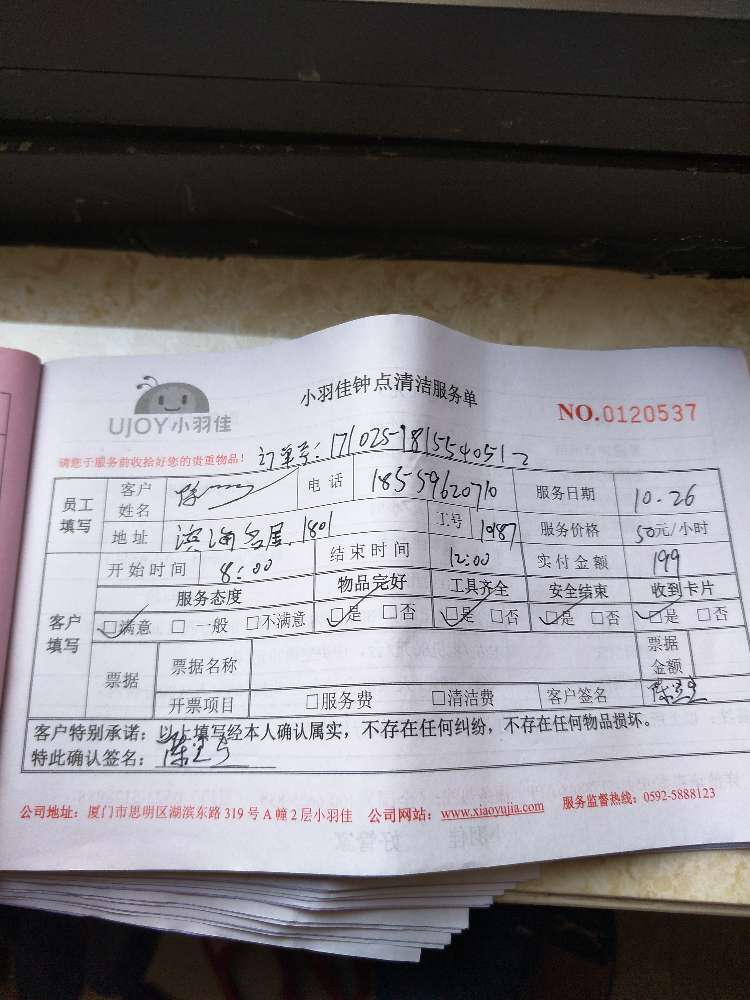 UJOY小羽佳
小羽佳钟点清洁服务单
NO.0120537
请您于服务前收拾好您的贵重物品!
订单号:171025-1815540512
员工填写 客户姓名 陈 电话 18559620710 服务日期 10.26
地址 滨海名居.1801 工号 1987 服务价格 50元/小时
客户填写 开始时间 8:00 结束时间 12:00 实付金额 199
服务态度 物品完好 工具齐全 安全结束 收到卡片
☑满意 □一般 □不满意 ☑是 □否 ☑是 □否 ☑是 □否 ☑是 □否
票据 票据名称 票据金额
开票项目 □服务费 □清洁费 客户签名 陈
客户特别承诺:以上填写经本人确认属实,不存在任何纠纷,不存在任何物品损坏。
特此确认签名:陈
公司地址:厦门市思明区湖滨东路319号A幢2层小羽佳 公司网站:www.xiaoyujia.com 服务监督热线:0592-5888123